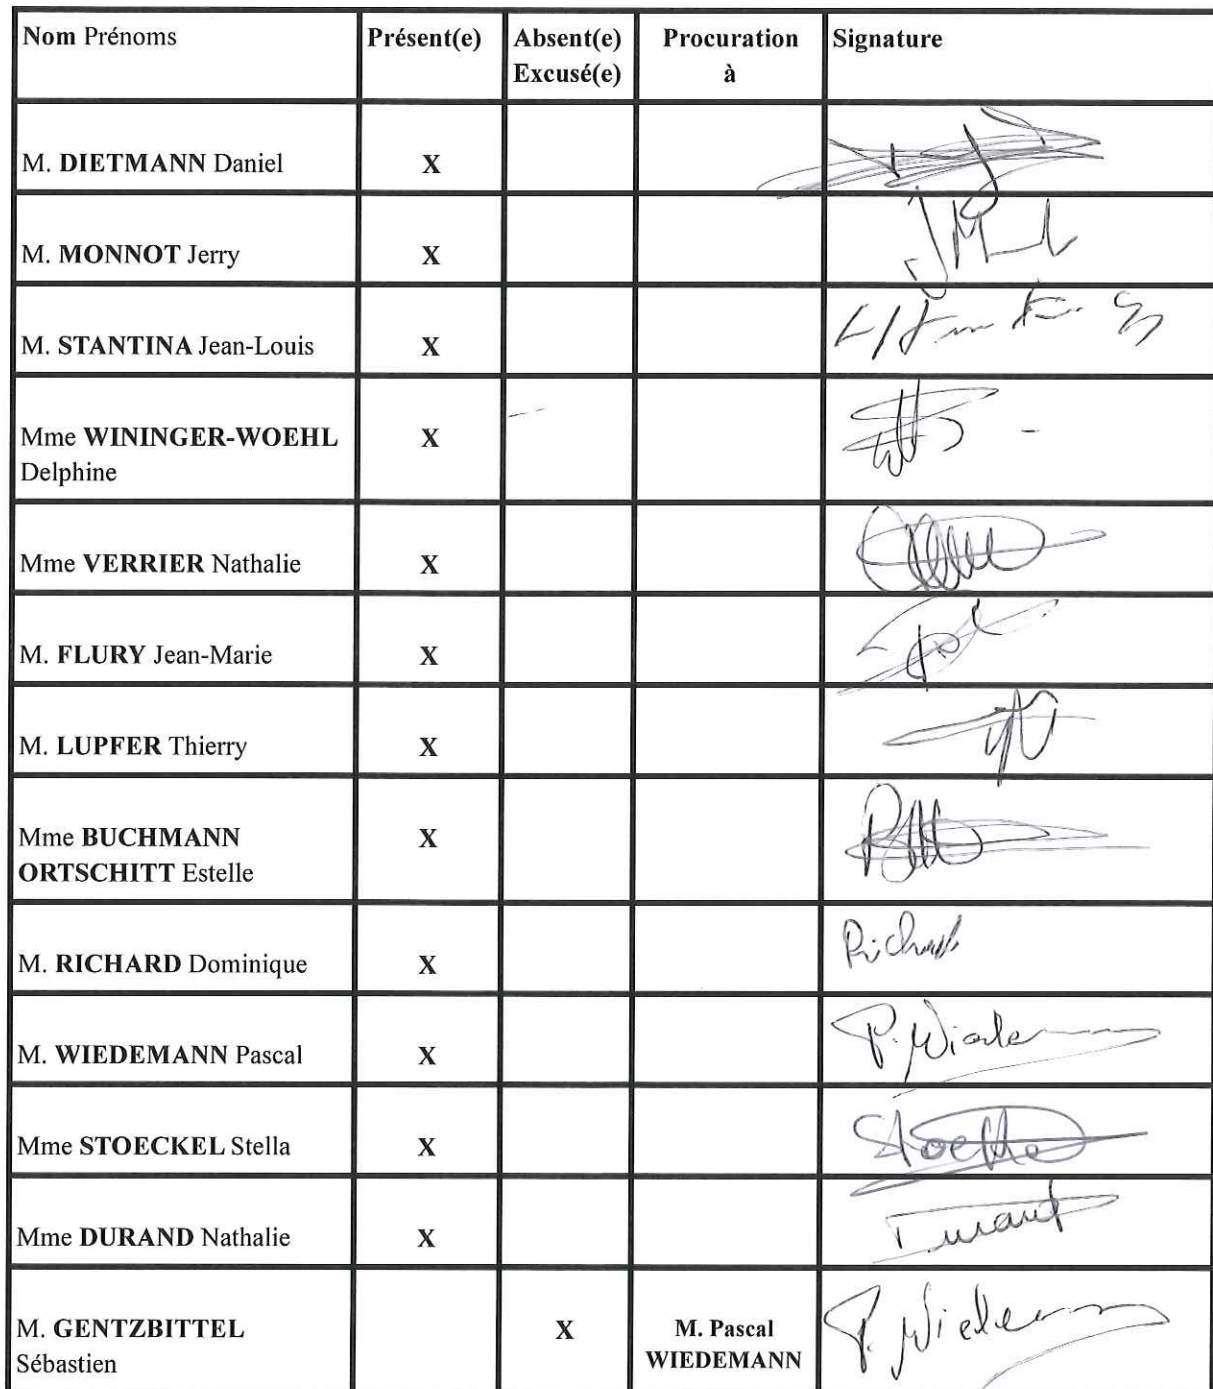 Nom Prénoms Présent(e) Absent(e) Procuration Signature
Excusé(e) à
M. DIETMANN Daniel X
M. MONNOT Jerry X
M. STANTINA Jean-Louis X
Mme WININGER-WOEHL X
Delphine
Mme VERRIER Nathalie X
M. FLURY Jean-Marie X
M. LUPFER Thierry X
Mme BUCHMANN X
ORTSCHITT Estelle
M. RICHARD Dominique X Richard
M. WIEDEMANN Pascal X P. Wiedemann
Mme STOECKEL Stella X
Mme DURAND Nathalie X Durand
M. GENTZBITTEL X M. Pascal P. Wiedemann
Sébastien WIEDEMANN